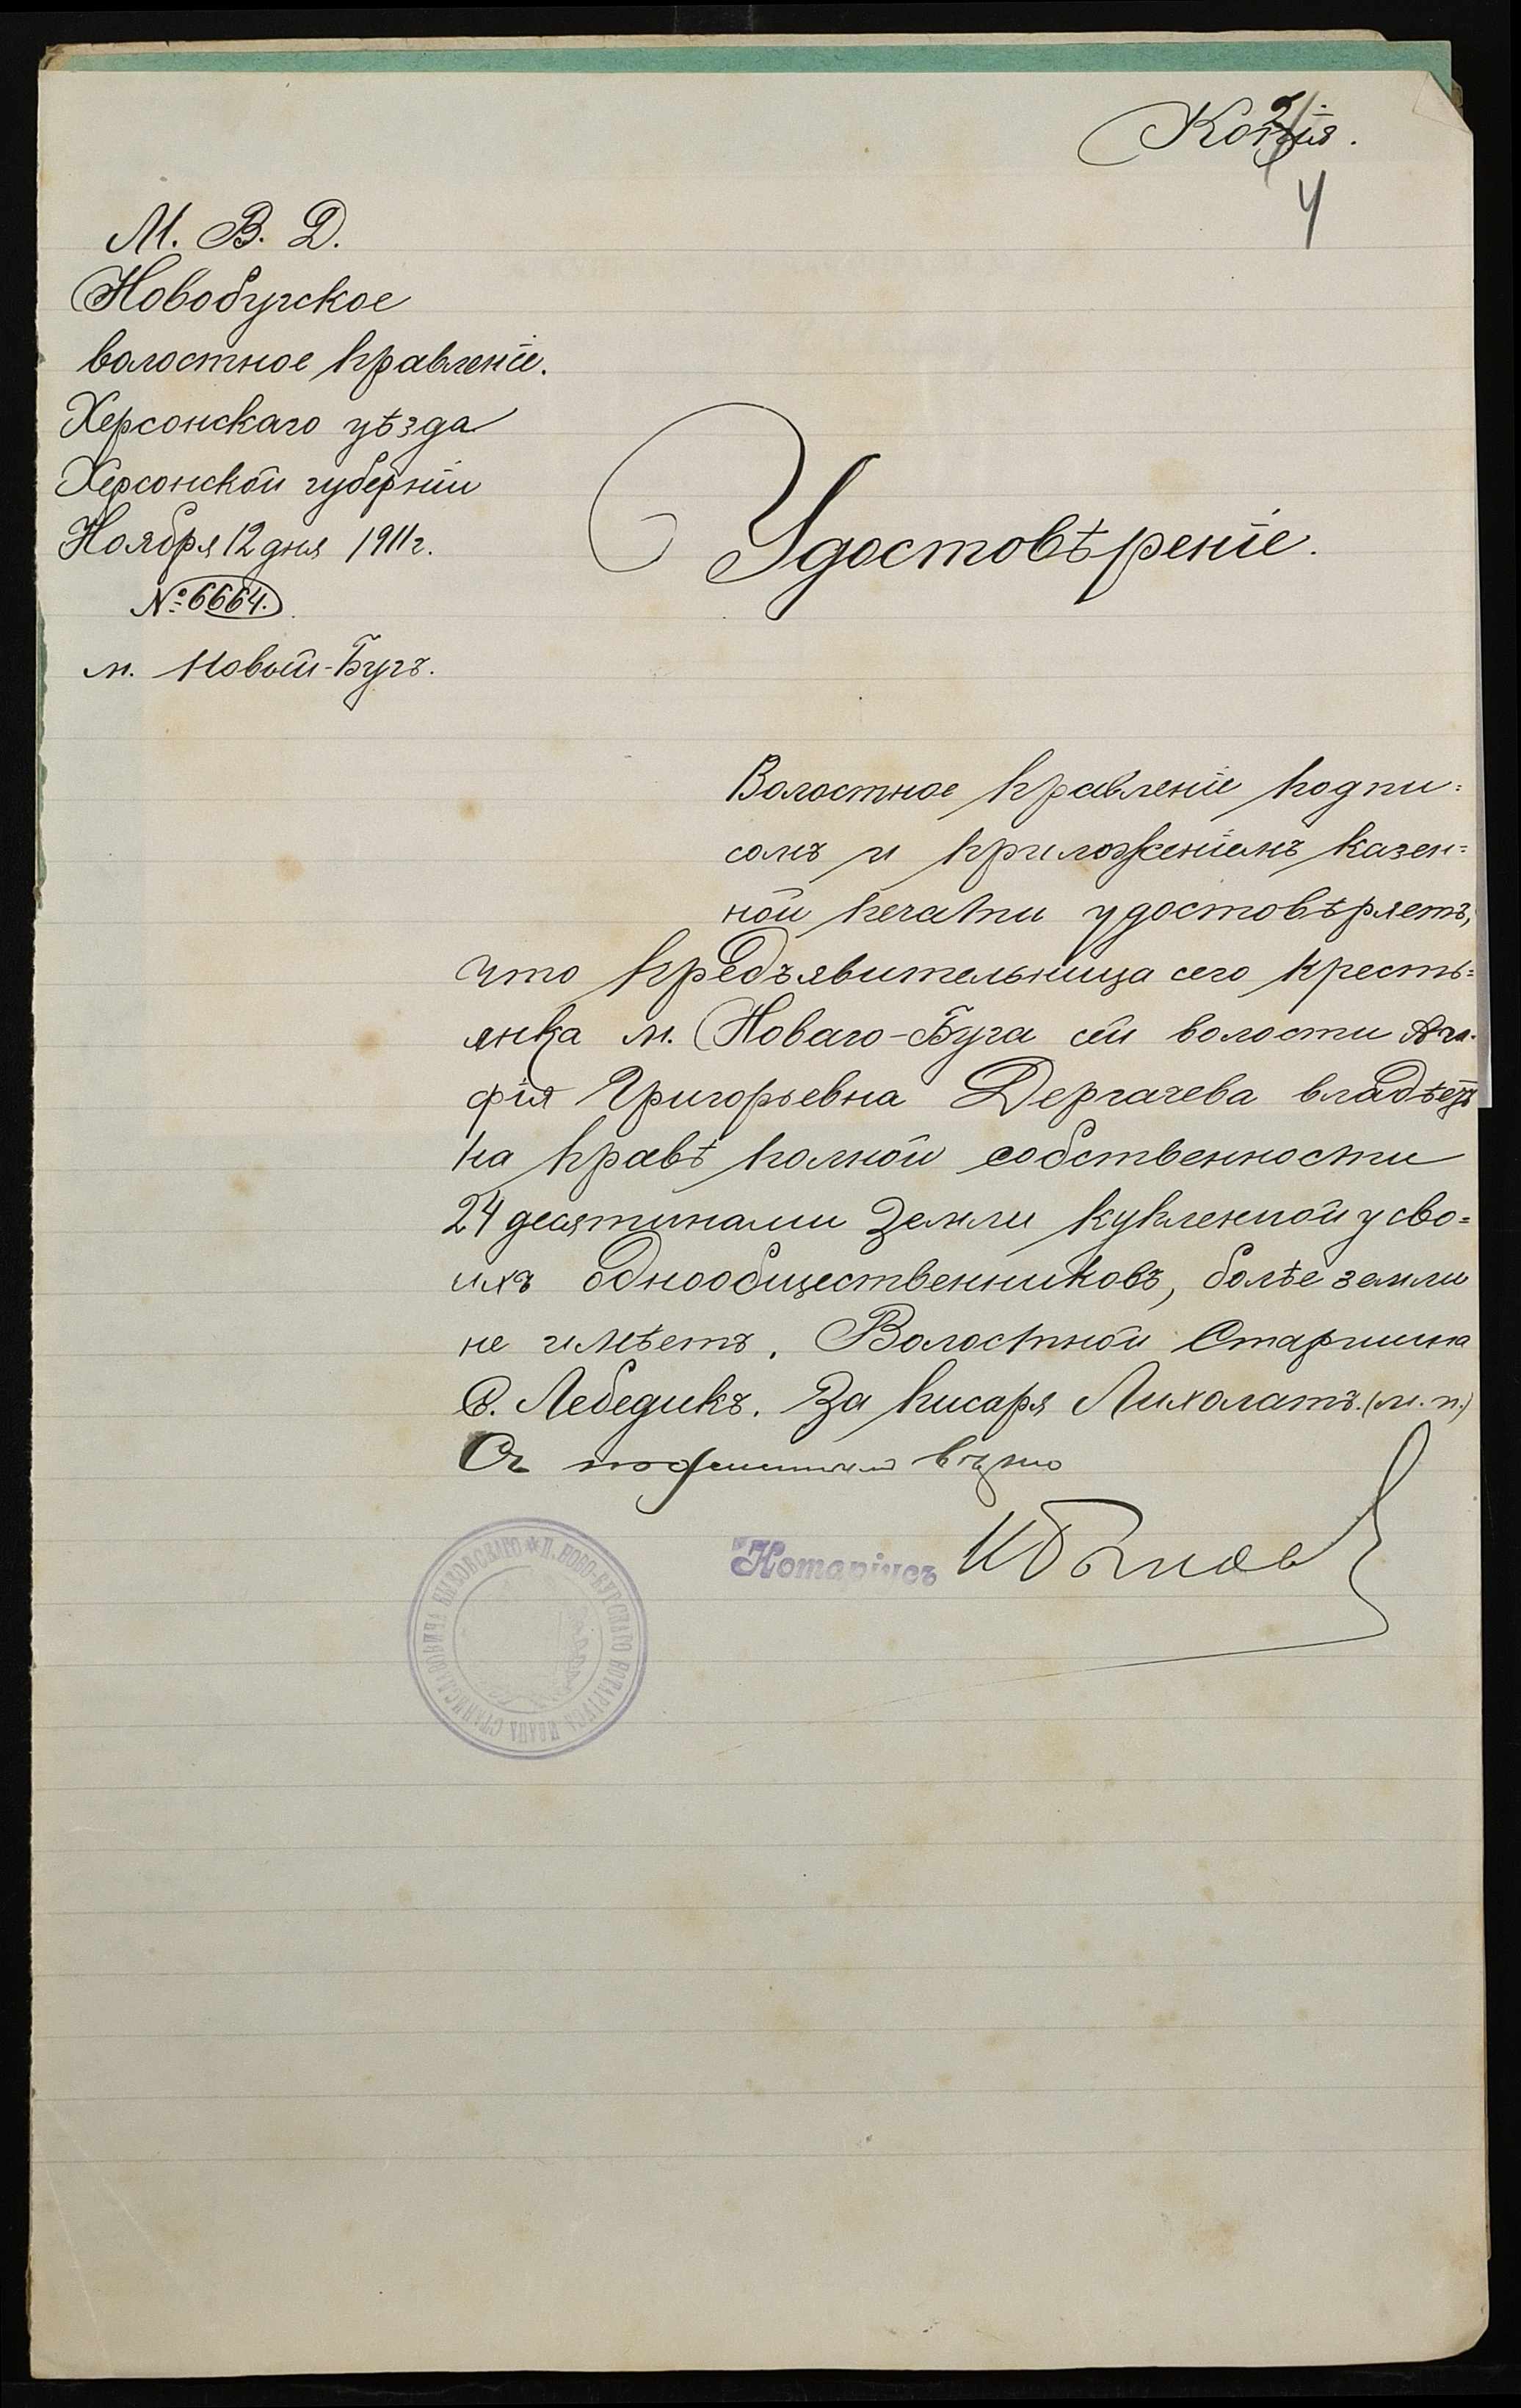 Копія.
4
М. В. Д.
Новобугское
волостное правленіе.
Херсонскаго уѣзда
Херсонской губерніи
Ноября 12 дня 1911 г.
№ 6664.
м. Новый-Бугъ.
Удостовѣреніе.
Волостное правленіе подпи=
сомъ и приложеніемъ казен=
ной печати удостовѣряетъ,
что предъявительница сего кресть=
янка м. Новаго-Буга сей волости Ага=
фія Григорьевна Дергачева владѣетъ
на правѣ полной собственности
24 десятинами земли купленной у сво=
ихъ однообщественниковъ, болѣе земли
не имѣетъ. Волостной Старшина
Лебедикъ. За писаря Лихолатъ. (м. п.)
Съ подлиннымъ вѣрно
Нотаріусъ
Н. НОВО-БУГСКАГО НОТАРІУСА ИВАНА СТАНИСЛАВОВИЧА